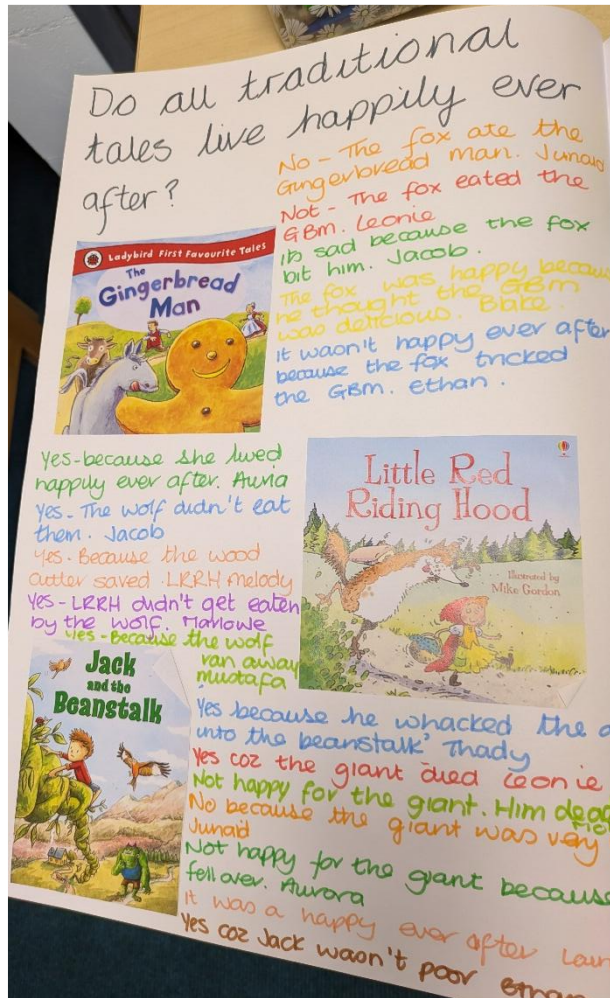 Do all traditional
tales live happily ever
after?
No - The fox ate the
Gingerbread man. Junaid
Not - The fox eated the
GBm. Leonie
its sad because the fox
bit him. Jacob.
The fox was happy becaus
he thought the GBm
was delicious. Blake.
it wasn't happy ever after
because the fox tricked
the GBm. Ethan.
Ladybird First Favourite Tales
The
Gingerbread
Man
Yes-because she lived
happily ever after.
Yes - The wolf didn't eat
them. Jacob
Yes - Because the wood
cutter saved LRRH melody
Yes - LRRH didn't get eaten
by the wolf. Marlowe
Yes - Because the wolf
ran away
mustafa
Little Red
Riding Hood
Illustrated by
Mike Gordon
Jack
and the
Beanstalk
Yes because he whacked the
into the beanstalk' Thady
Yes coz the giant died Leonie
Not happy for the giant. Him dead
No because the giant was very
Junaid
Not happy for the giant because
fell over. Aurora
it was a happy ever after
Yes coz Jack wasn't poor